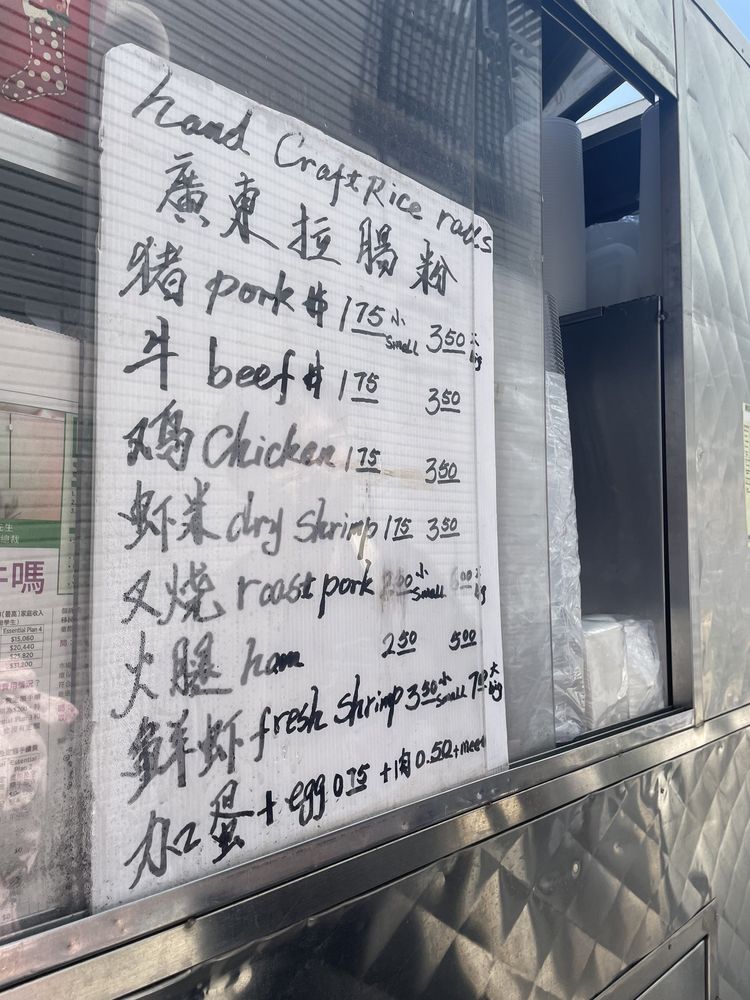 hand Craft Rice rolls
廣東拉腸粉
猪 pork $ 1.75 小 small 3.50 大 big
牛 beef $ 1.75 3.50
鸡 Chicken 1.75 3.50
虾米 dry shrimp 1.75 3.50
叉烧 roast pork 2.50 小 small 5.00 大 big
火腿 ham 2.50 5.00
鮮虾 fresh shrimp 3.50 小 small 7.00 大 big
加蛋 + egg 0.75 + 肉 0.50 + meet
嗎
Essential Plan 4
$15,060
$20,440
$25,820
$31,200